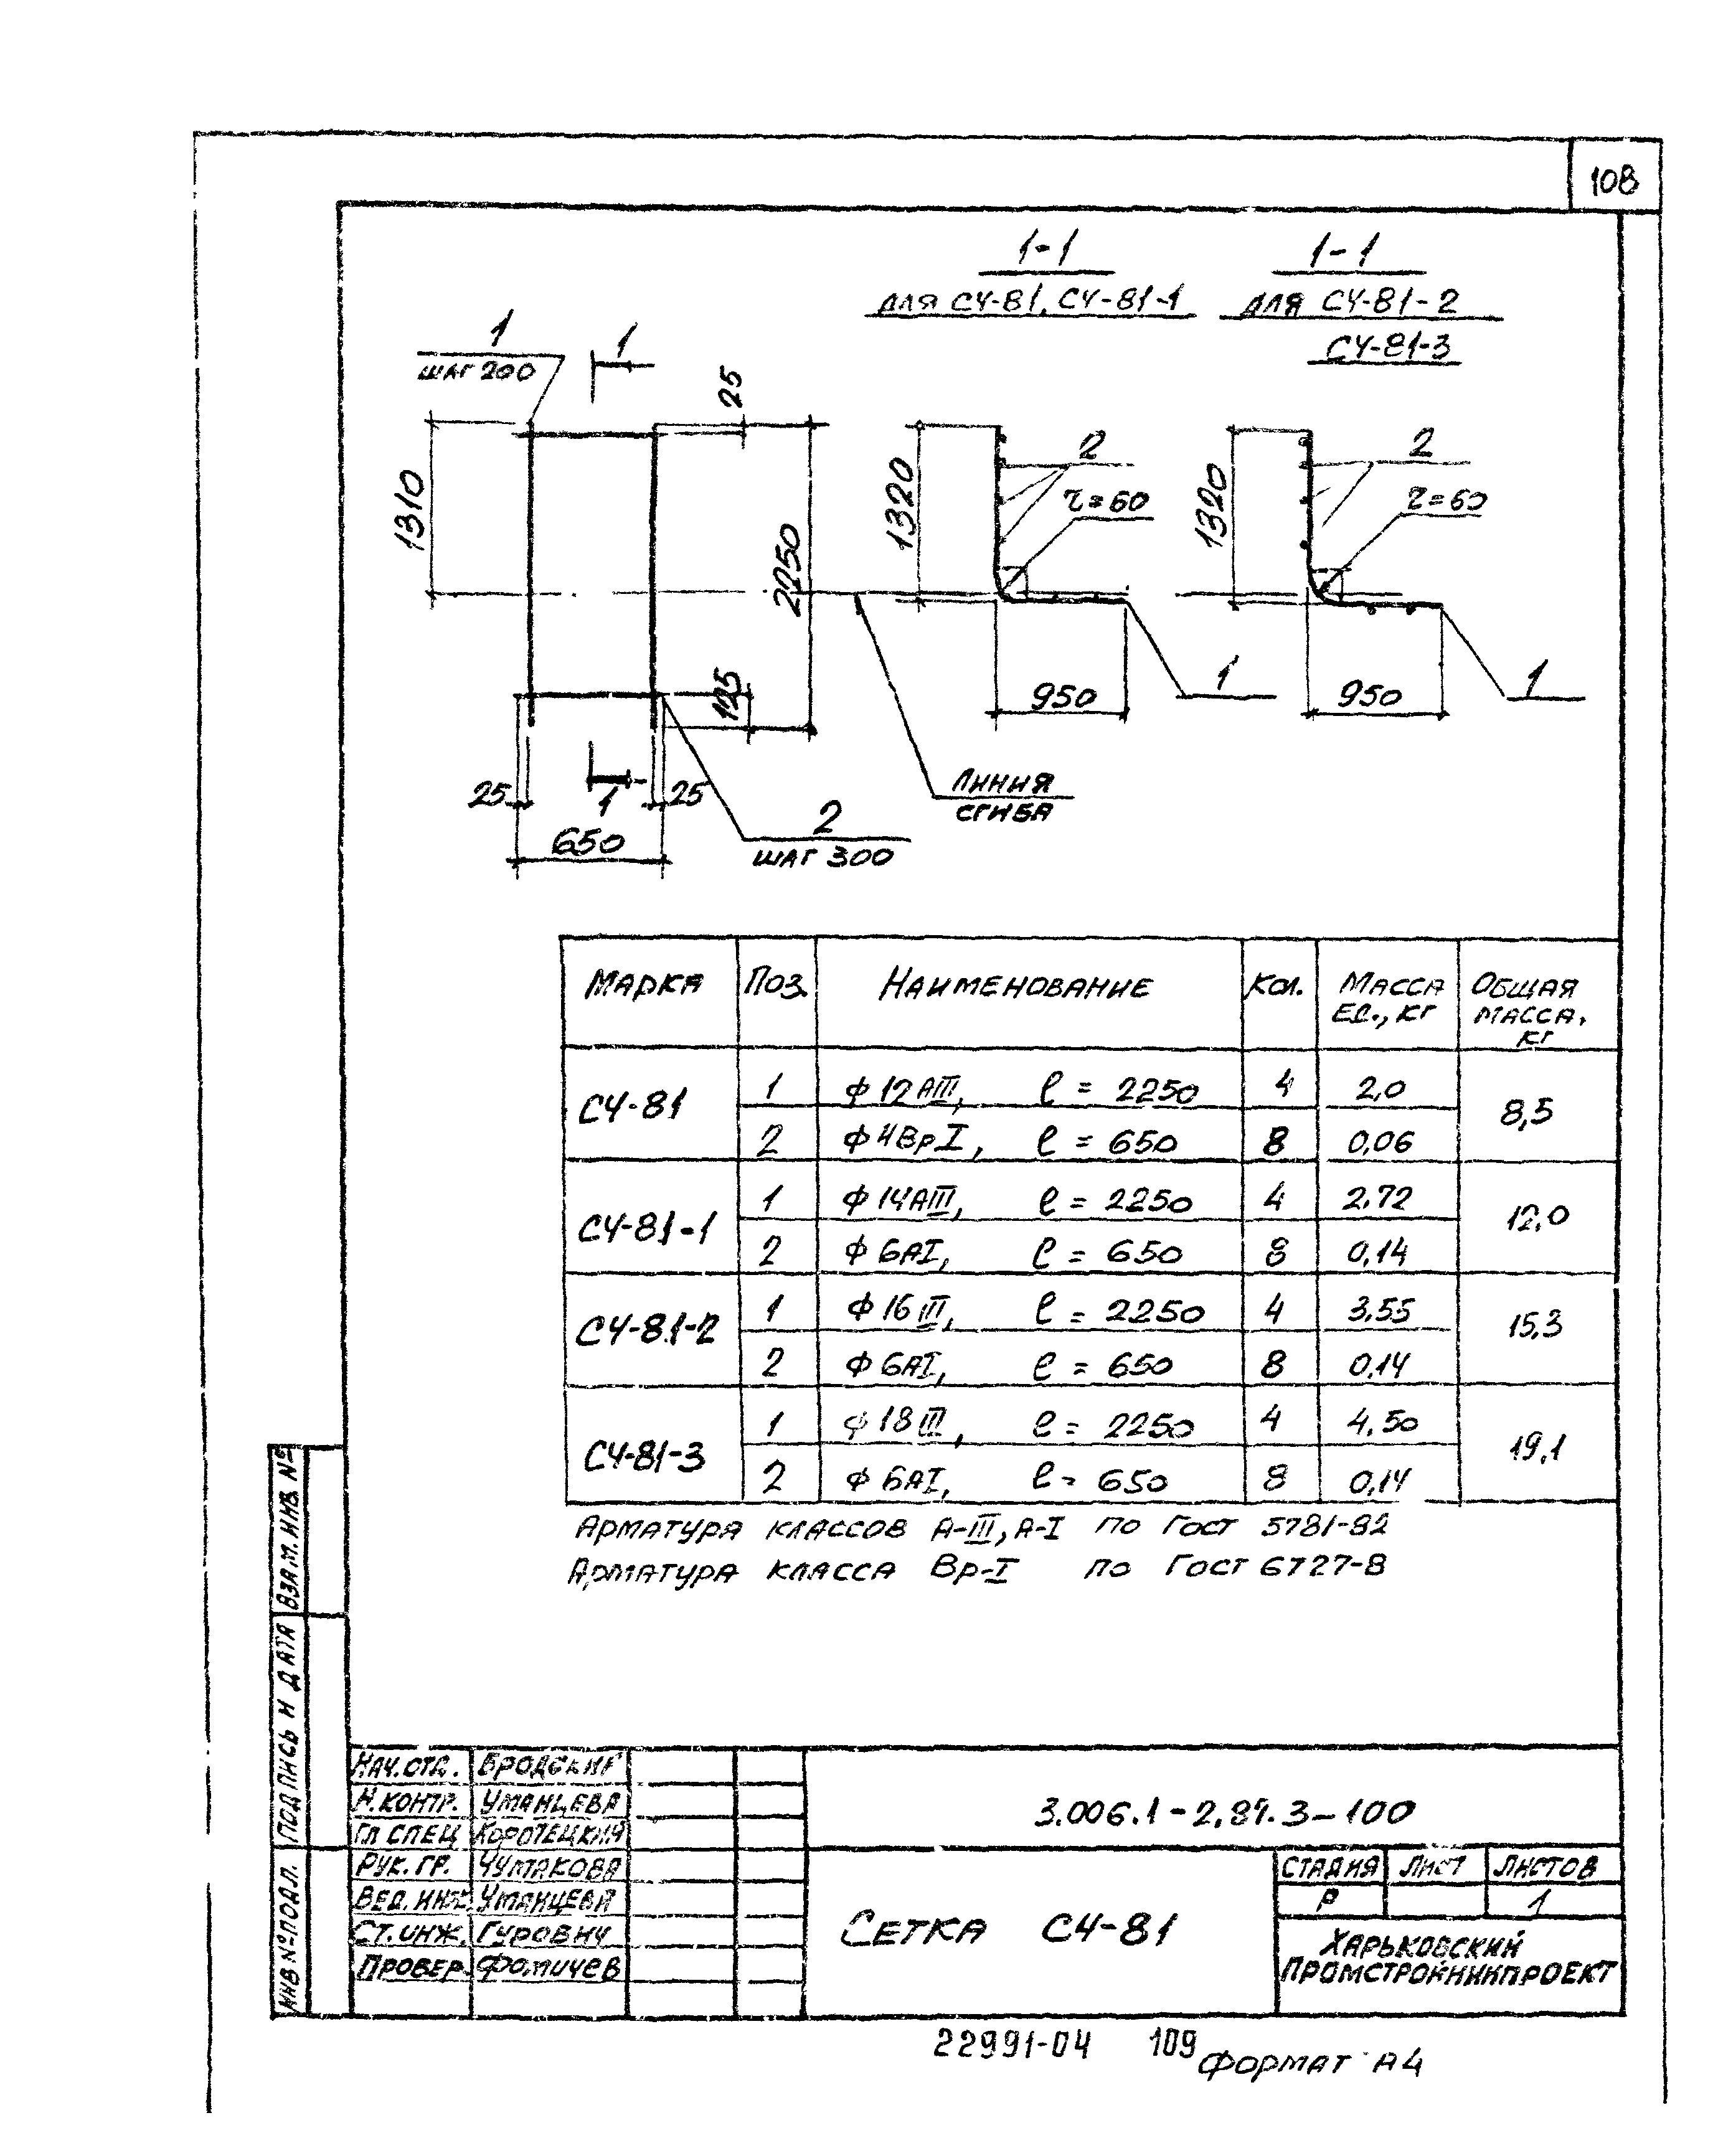 108
1-1
для СЧ-81, СЧ-81-1
1-1
для СЧ-81-2
СЧ-81-3
1
шаг 200
1
25
1310
2250
125
25
1
25
650
2
шаг 300
1320
2
r=60
950
1
Линия
сгиба
1320
2
r=60
950
1
Марка Поз. Наименование Кол. Масса ед., кг Общая масса, кг
СЧ-81 1 ф12АIII, ℓ = 2250 4 2,0 8,5
2 ф4ВрI, ℓ = 650 8 0,06
СЧ-81-1 1 ф14АIII, ℓ = 2250 4 2,72 12,0
2 ф6АI, ℓ = 650 8 0,14
СЧ-81-2 1 ф16III, ℓ = 2250 4 3,55 15,3
2 ф6АI, ℓ = 650 8 0,14
СЧ-81-3 1 ф18III, ℓ = 2250 4 4,50 19,1
2 ф6АI, ℓ = 650 8 0,14
Арматура классов А-III, А-I по Гост 5781-82
Арматура класса Вр-I по Гост 6727-8
Взам. инв №
Подпись и дата
Инв № подл.
Нач. отд. Бродский
Н. контр. Уманцева
Гл спец Коротецкий
Рук. гр. Чумакова
Вед. инж Уманцева
Ст. инж. Гуровну
Провер. Фомичев
3.006.1-2.87.3-100
Сетка СЧ-81
Стадия Лист Листов
Р 1
Харьковский
Промстройниипроект
22991-04 109
Формат А4